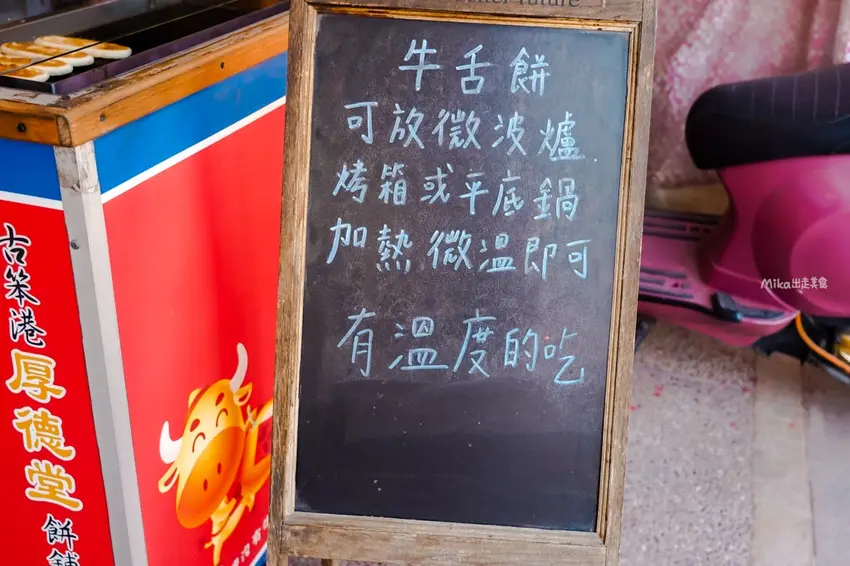 future
牛舌餅
可放微波爐
烤箱或平底鍋
加熱微溫即可
有溫度的吃
古笨港
厚德堂
餅舖
Mika出走美食